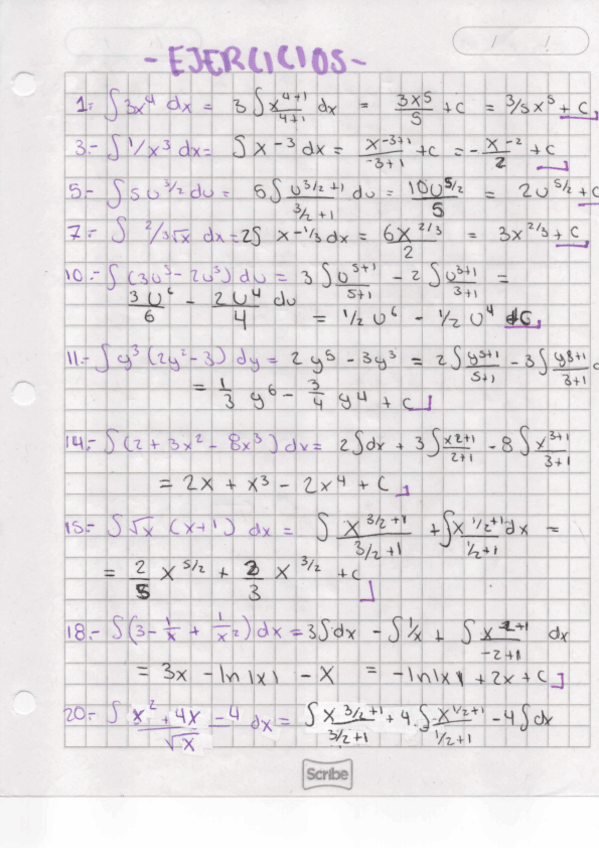 - EJERCICIOS -
1.- ∫ 3x⁴ dx = 3 ∫ x⁴⁺¹/4+1 dx = 3x5/5 + c = 3/5 x⁵ + C
3.- ∫ 1/x³ dx = ∫ x⁻³ dx = x⁻³⁺¹/-3+1 + c = - x⁻²/2 + C
5.- ∫ 5 u³/² du = 5 ∫ u³/²⁺¹/3/2+1 du = 10u⁵/²/5 = 2u⁵/² + C
7.- ∫ 2/3√x dx = 2∫ x⁻¹/³ dx = 6x²/³/2 = 3x²/³ + C
10.- ∫ (3u⁵ - 2u³) du = 3 ∫ u⁵⁺¹/5+1 - 2 ∫ u³⁺¹/3+1 =
3u⁶/6 - 2u⁴/4 du = 1/2 u⁶ - 1/2 u⁴ + C
11.- ∫ y³ (2y² - 3) dy = 2y⁵ - 3y³ = 2 ∫ y⁵⁺¹/5+1 - 3 ∫ y3+1/3+1
= 1/3 y⁶ - 3/4 y4 + C
14.- ∫ (2 + 3x² - 8x³) dx = 2∫dx + 3∫ x2+1/2+1 - 8 ∫ x³⁺¹/3+1
= 2x + x³ - 2x⁴ + C
15.- ∫ √x (x+1) dx = ∫ x³/²⁺¹/3/2+1 + ∫ x¹/²⁺¹/1/2+1 dx =
= 2/5 x⁵/² + 2/3 x³/² + C
18.- ∫ (3 - 1/x + 1/x²) dx = 3∫dx - ∫ 1/x + ∫ x⁻²⁺¹/-2+1 dx
= 3x - ln|x| - x = -ln|x| + 2x + C
20.- ∫ x² + 4x - 4/√x dx = ∫ x³/²⁺¹/3/2+1 + 4 ∫ x¹/²⁺¹/1/2+1 - 4 ∫ dx
Scribe